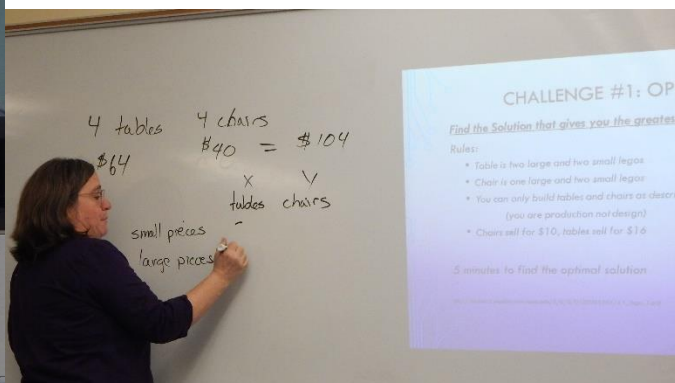 4 tables 4 chairs
$64 $40 = $104
X Y
tables chairs
small pieces
large pieces
CHALLENGE #1: OP
Find the Solution that gives you the greates
Rules:
• Table is two large and two small legos
• Chair is one large and two small legos
• You can only build tables and chairs as descr
(you are production not design)
• Chairs sell for $10, tables sell for $16
5 minutes to find the optimal solution